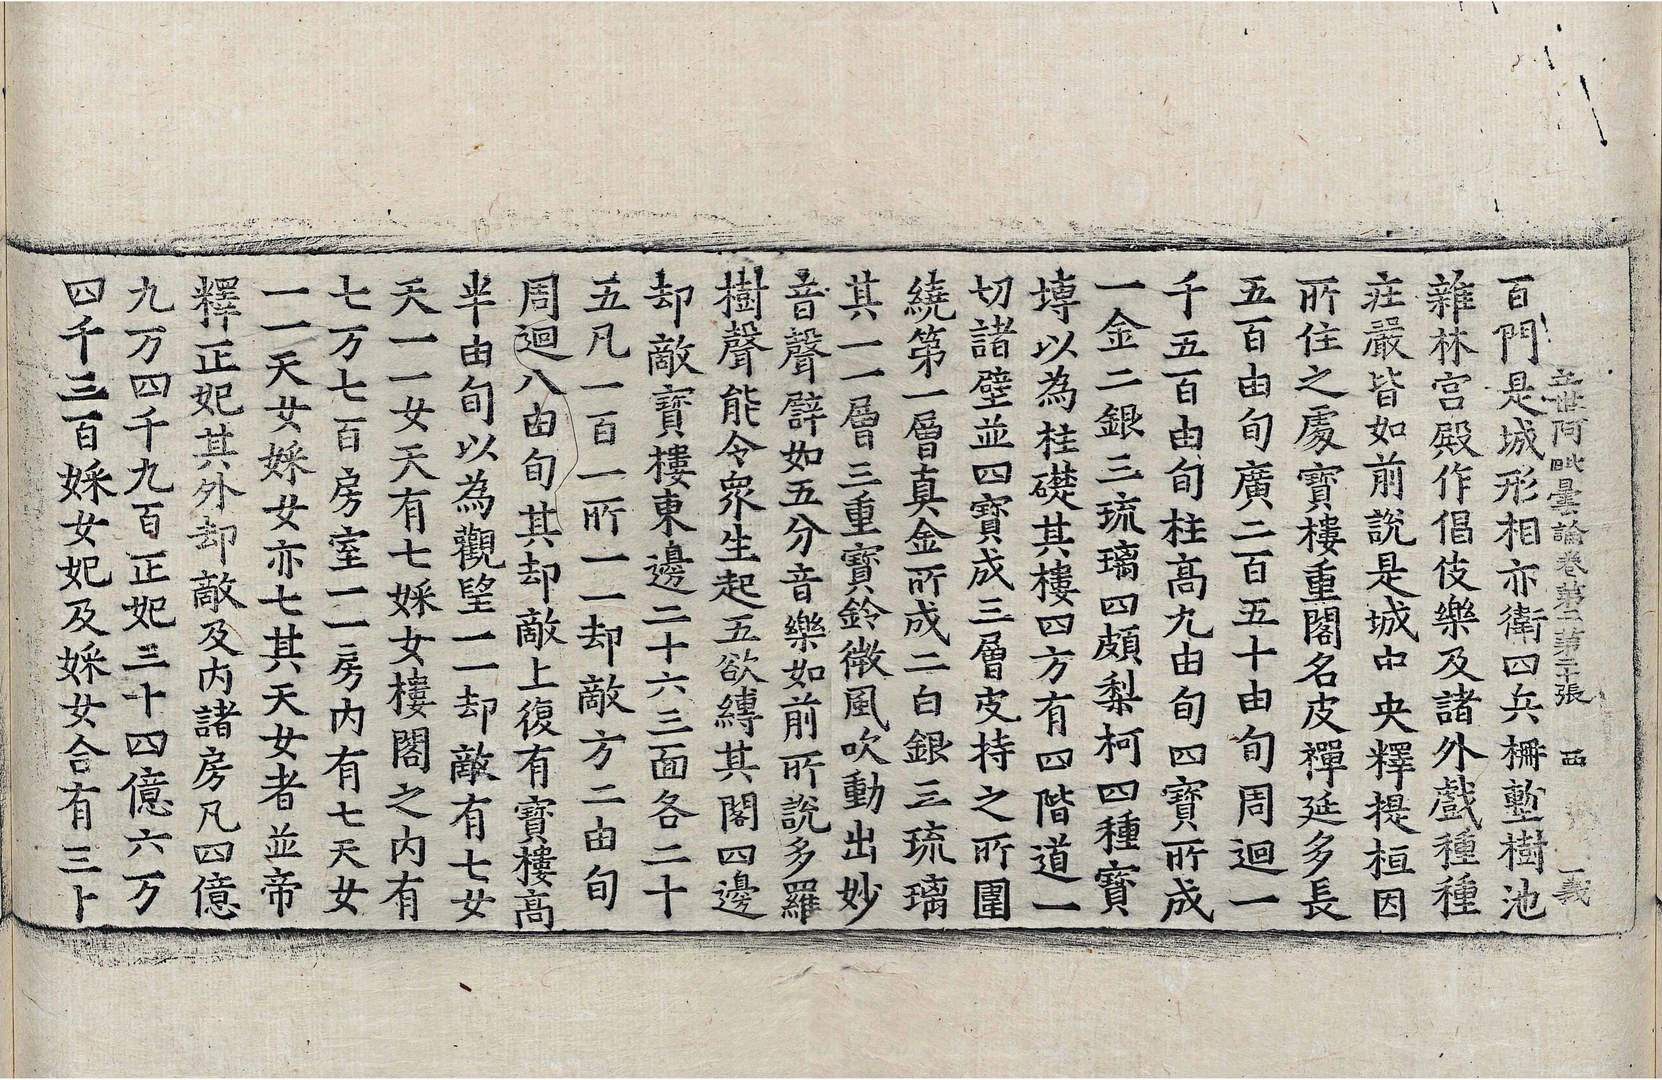 立世阿毗曇論卷第二 第二十張 西 義
百門是城形相亦衛四兵栅塹樹池
雜林宮殿作倡伎樂及諸外戲種種
莊嚴皆如前說是城中央釋提桓因
所住之處寶樓重閣名皮禪延多長
五百由旬廣二百五十由旬周迴一
千五百由旬柱高九由旬四寶所成
一金二銀三琉璃四頗梨柯四種寶
塼以為柱礎其樓四方有四階道一
切諸壁並四寶成三層皮持之所圍
繞第一層真金所成二白銀三琉璃
其一一層三重寶鈴微風吹動出妙
音聲辟如五分音樂如前所說多羅
樹聲能令眾生起五欲縛其閣四邊
却敵寶樓東邊二十六三面各二十
五凡一百一所一一却敵方二由旬
周迴八由旬其却敵上復有寶樓高
半由旬以為觀望一一却敵有七女
天一一女天有七婇女樓閣之內有
七万七百房室一一房內有七天女
一一天女婇女亦七其天女者並帝
釋正妃其外却敵及內諸房凡四億
九万四千九百正妃三十四億六万
四千三百婇女妃及婇女合有三十